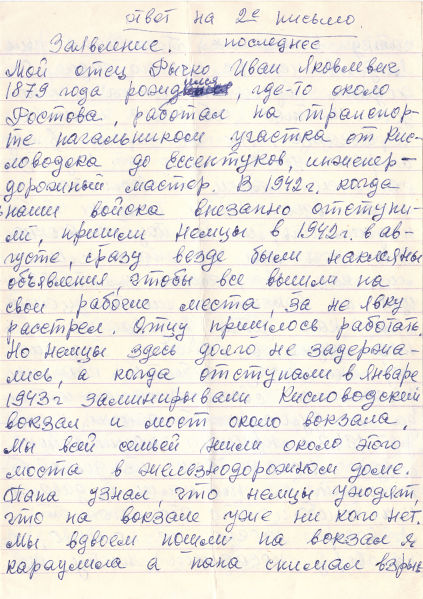 ответ на 2е письмо.
Заявление. последнее
Мой отец Рычко Иван Яковлевич
1879 года рождения, где-то около
Ростова, работал на транспор-
те начальником участка от Кис-
ловодска до Ессентуков, инженер-
дорожный мастер. В 1942 г. когда
наши войска внезапно отступи-
ли, пришли немцы в 1942 г. в ав-
густе, сразу везде были наклеяны
объявления, чтобы все вышли на
свои рабочие места, за не явку
расстрел. Отцу пришлось работать.
Но немцы здесь долго не задержа-
лись, а когда отступали в январе
1943 г заминировали Кисловодский
вокзал и мост около вокзала.
Мы всей семьей жили около этого
моста в железнодорожном доме.
Папа узнал, что немцы уходят,
что на вокзале уже ни кого нет.
Мы вдвоем пошли на вокзал я
караулила а папа снимал взрыв